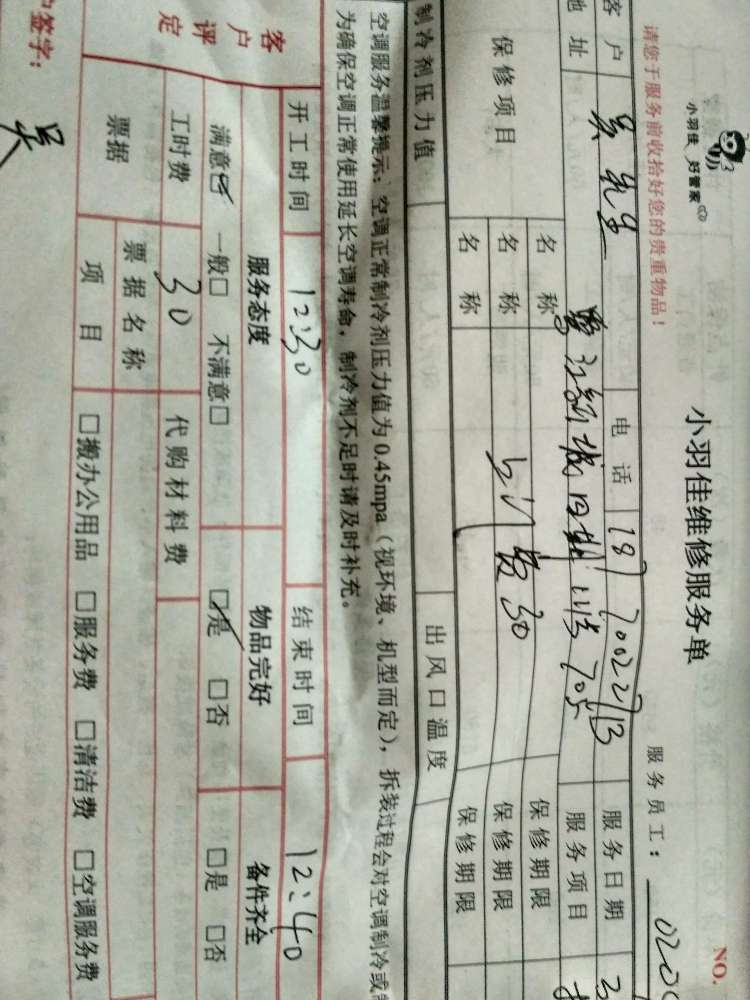 小羽佳 好管家
小羽佳维修服务单
NO.
请您于服务前收拾好您的贵重物品!
服务员工:
客户 吴先生 电话 服务日期
地址 服务项目
保修项目
名称 保修期限
名称 上门费30 保修期限
名称 保修期限
制冷剂压力值 出风口温度
空调服务温馨提示:空调正常制冷剂压力值为0.45mpa(视环境、机型而定),拆装过程会对空调制冷或制
为确保空调正常使用延长空调寿命,制冷剂不足时请及时补充。
开工时间 12:30 结束时间 12:40
客户评定
服务态度 物品完好 备件齐全
满意☑ 一般□ 不满意□ ☑是 □否 □是 □否
工时费 30 代购材料费
票据 票据名称
项目 □搬办公用品 □服务费 □清洁费 □空调服务费
户签字: 吴